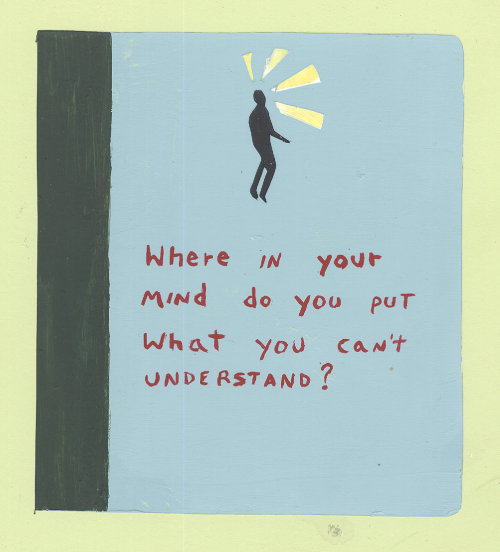 Where IN your
MINd do you PUT
What you caN't
UNDERSTAND?